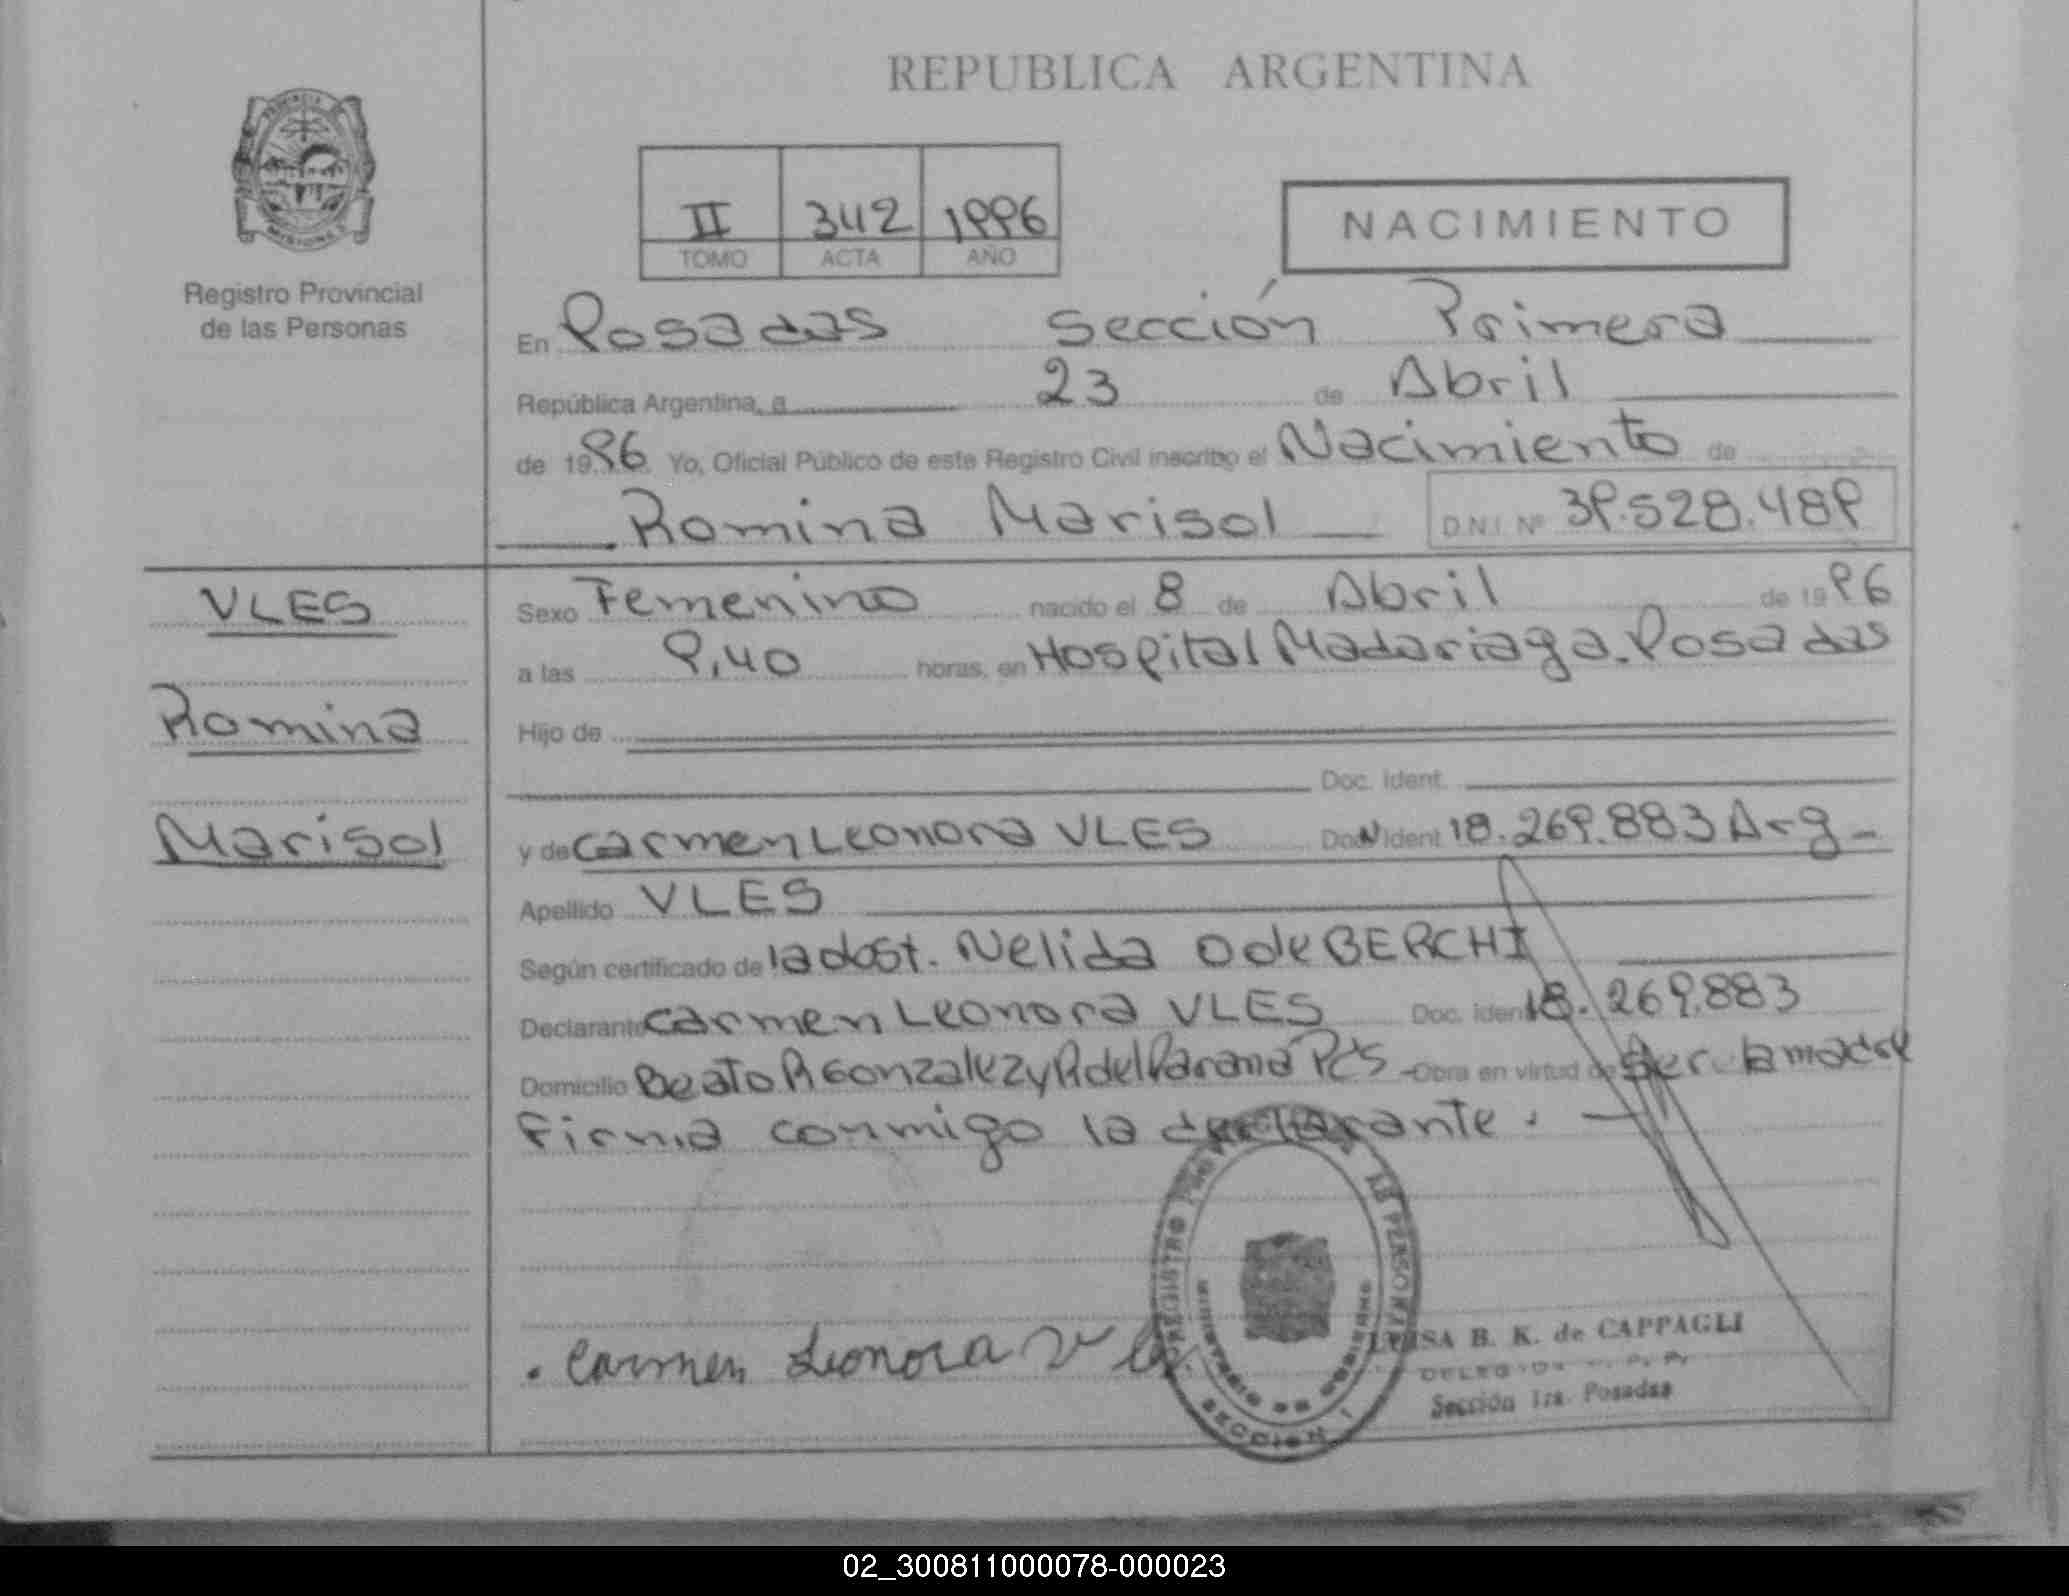 REPUBLICA ARGENTINA
PROVINCIA
MISIONES
Registro Provincial
de las Personas
II 342 1996
TOMO ACTA AÑO
NACIMIENTO
En Posadas Sección Primera
República Argentina, a 23 de Abril
de 1996 Yo, Oficial Público de este Registro Civil inscribo el Nacimiento de
Romina Marisol D.N.I. Nº 39.528.489
VLES
Romina
Marisol
Sexo Femenino nacido el 8 de Abril de 1996
a las 9,40 horas, en Hospital Madariaga. Posadas
Hijo de
Doc. Ident.
y de Carmen Leonora VLES Doc. Ident 18.269.883 Arg
Apellido VLES
Según certificado de la obst. Nelida O de BERCHI
Declarante Carmen Leonora VLES Doc. ident 18.269.883
Domicilio Beato R Gonzalez y R del Paraná Pds Obra en virtud de ser la madre
Firma conmigo la declarante.
Carmen Leonora
REGISTRO DE PERSONAS
MINISTERIO DE GOBIERNO
SECCION 1
LUISA B. K. de CAPPAGLI
Sección 1ra. Posadas
02_300811000078-000023